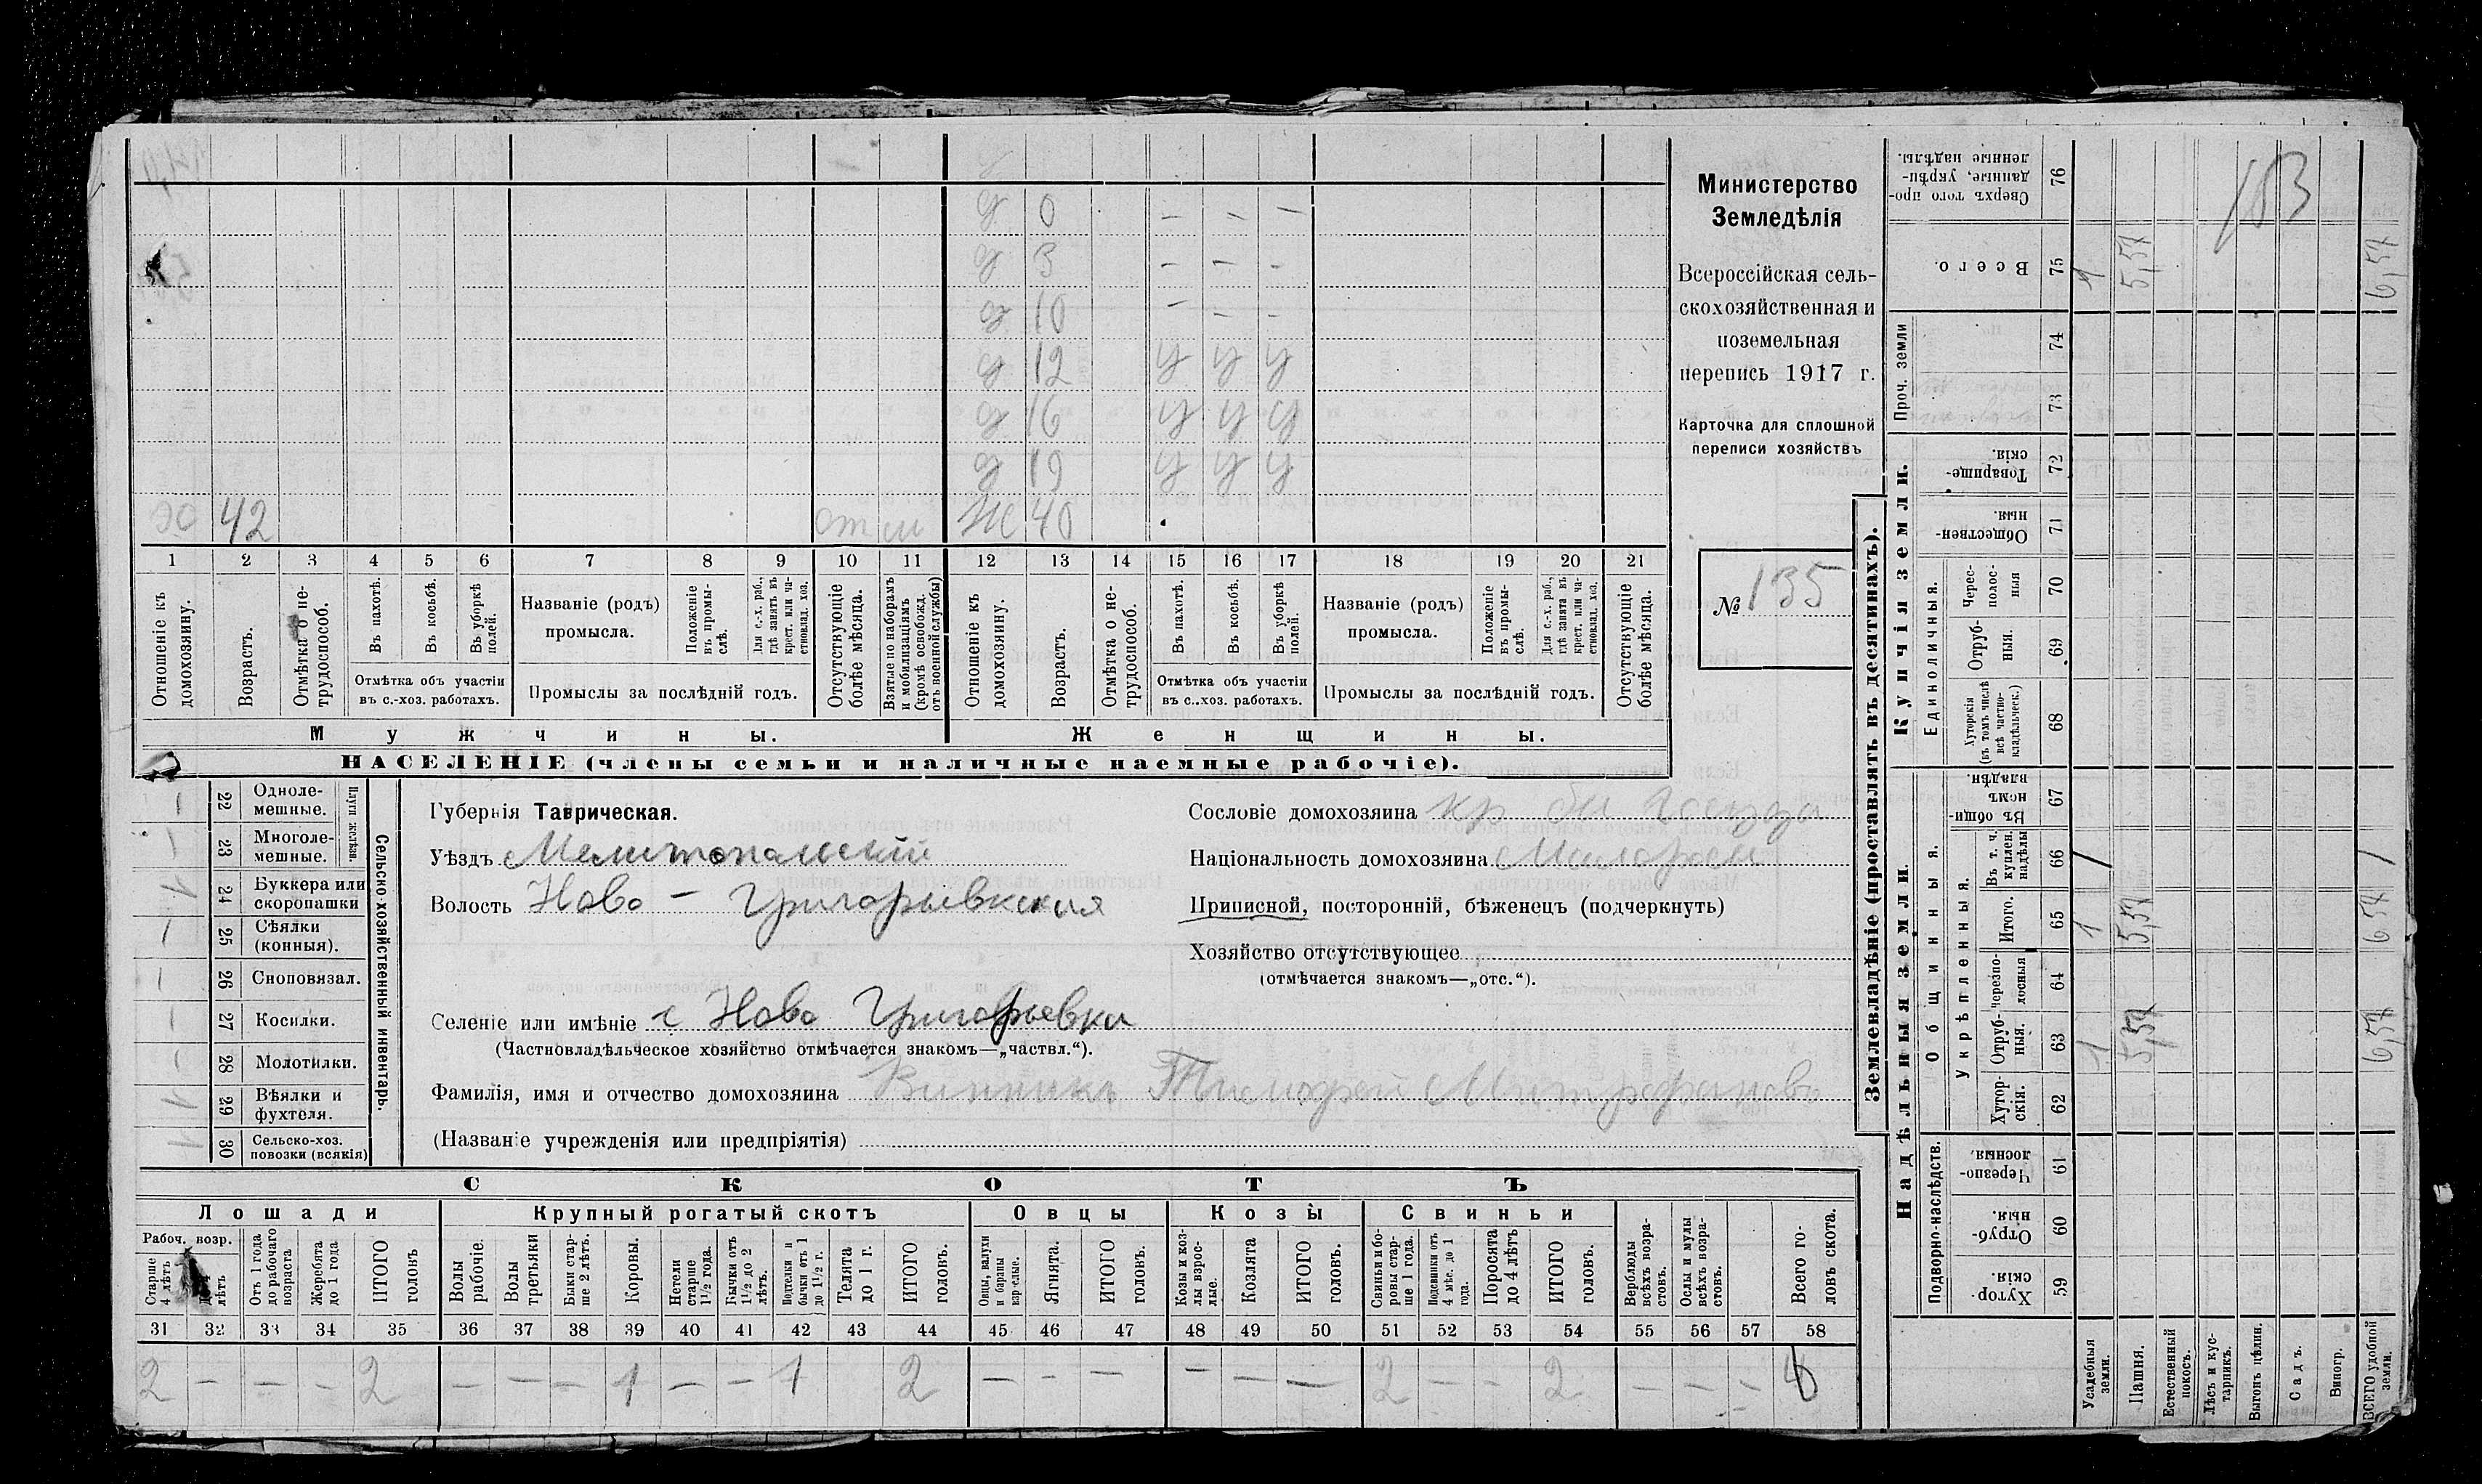 Министерство
Земледѣлія
Всероссійская сель-
скохозяйственная и
поземельная
перепись 1917 г.
Карточка для сплошной
переписи хозяйствъ
№ 135
д 0 — — —
д 3 — — —
д 10 — — —
д 12 у у у
д 16 у у у
д 19 у у у
хо 42 от м Ж 40
1 2 3 4 5 6 7 8 9 10 11 12 13 14 15 16 17 18 19 20 21
Отношеніе къ домохозяину.
Возрастъ.
Отмѣтка о не-трудоспособ.
Въ пахотѣ.
Въ косьбѣ.
Въ уборкѣ полей.
Отмѣтка объ участіи
въ с.-хоз. работахъ.
Названіе (родъ)
промысла.
Положеніе въ промы-слѣ.
Для с.-х. раб., гдѣ занятъ въ крест. или ча-стновлад. хоз.
Промыслы за послѣдній годъ.
Отсутствующіе болѣе мѣсяца.
Взятые по наборамъ и мобилизаціямъ (кромѣ освобожд. отъ военной службы)
Отношеніе къ домохозяину.
Возрастъ.
Отмѣтка о не-трудоспособ.
Въ пахотѣ.
Въ косьбѣ.
Въ уборкѣ полей.
Отмѣтка объ участіи
въ с..хоз. работахъ.
Названіе (родъ)
промысла.
Положеніе въ промы-слѣ.
Для с.-х. раб., гдѣ занята въ крест. или ча-стновлад. хоз.
Промыслы за послѣдній годъ.
Отсутствующіе болѣе мѣсяца.
Мужчины. Женщины.
НАСЕЛЕНІЕ (члены семьи и наличные наемные рабочіе).
Сельско-хозяйственный инвентарь.
Плуги желѣзн.
22 Одноле-мешные.
23 Многоле-мешные.
24 Буккера или скоропашки 1
25 Сѣялки (конныя).
26 Сноповязал.
27 Косилки.
28 Молотилки.
29 Вѣялки и фухтеля.
30 Сельско-хоз. повозки (всякія)
Губернія Таврическая.
Уѣздъ Мелитопольскій
Волость Ново - Григорьевская
Селеніе или имѣніе с Ново Григорьевка
(Частновладѣльческое хозяйство отмѣчается знакомъ—„частвл.“).
Фамилія, имя и отчество домохозяина Винникъ Тимофей Митрофановъ
(Названіе учрежденія или предпріятія)
Сословіе домохозяина кр бы
Національность домохозяина Малорос
Приписной, посторонній, бѣженецъ (подчеркнуть)
Хозяйство отсутствующее
(отмѣчается знакомъ—„отс.“).
СКОТЪ
Лошади Крупный рогатый скотъ Овцы Козы Свиньи
Рабоч. возр.
Старше 4 лѣтъ
лѣтъ
Отъ 1 года до рабочаго возраста
Жеребята до 1 года.
ИТОГО головъ
Волы рабочіе.
Волы третьяки
Быки стар-ше 2 лѣтъ.
Коровы.
Нетели старше 1½ года.
Бычки отъ 1½ до 2 лѣтъ.
Подтелки и бычки отъ 1 до 1½ г.
Телята до 1 г.
ИТОГО головъ.
Овцы, валухи и бараны взрослые.
Ягнята.
ИТОГО головъ.
Козы и коз-лы взрос-лые.
Козлята
ИТОГО головъ.
Свиньи и бо-ровы стар-ше 1 года.
Подсвинки отъ 4 мѣс. до 1 года.
Поросята до 4 лѣтъ
ИТОГО головъ.
Верблюды всѣхъ возра-стовъ.
Ослы и мулы всѣхъ возра-стовъ.
Всего го-ловъ скота.
31 32 33 34 35 36 37 38 39 40 41 42 43 44 45 46 47 48 49 50 51 52 53 54 55 56 57 58
2 — — — 2 — — — 1 — — 1 2 — — — — — — 2 — — 2 — — —
Землевладѣніе (проставлять въ десятинахъ).
Надѣльныя земли. Купчія земли.
Подворно-наслѣдств.
Общинныя.
Укрѣпленныя.
Единоличныя.
Проч. земли
Хутор-скія. 59
Отруб-ныя. 60
Черезпо-лосныя. 61
Хутор-скія. 62
Отруб-ныя. 63 1 5,57 6,57
Черезпо-лосныя 64
Итого. 65 1 5,57 6,57
Въ т. ч. куплен. надѣлы 66
Въ общи-номъ владѣн. 67
Хуторскія (въ томъ числѣ всѣ частно-владѣльческ.) 68
Отруб-ныя. 69
Черес-полос-ныя 70
Обществен-ныя. 71
Товарище-скія. 72
73
74
Всего. 75 1 5,57 6,57
Сверхъ того про-данные, укрѣп-ленные надѣлы. 76
Усадебныя земли.
Пашня.
Естественный покосъ.
Лѣсъ и кус-тарникъ.
Выгонъ цѣлин.
Садъ.
Виногр.
ВСЕГО удобной земли.